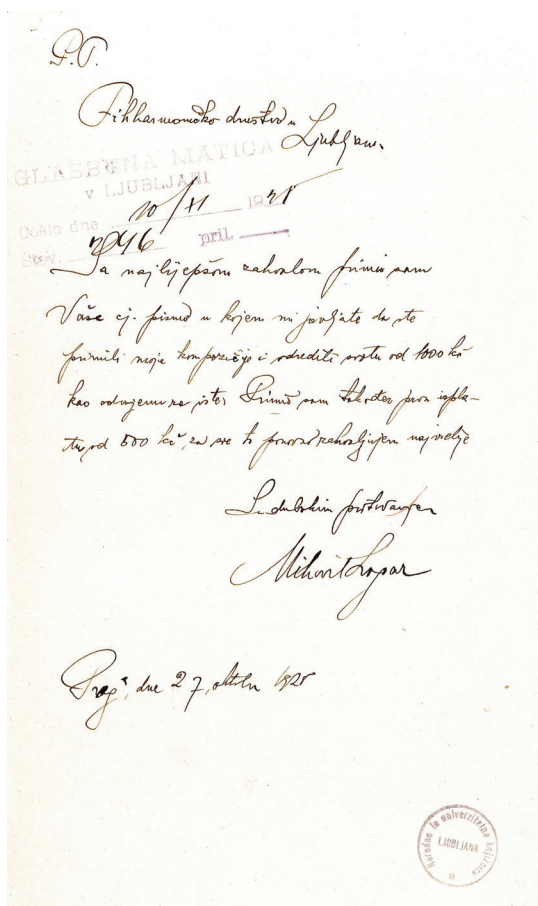 P.T.
Filharmoničko društvo u
Ljubljani.
GLASBENA MATICA
V LJUBLJANI
Došlo dne 10/XI 1925
Štev. 2046 pril.
Sa najljepšom zahvalom primio sam
Vaše cj. pismo u kojem mi javljate da ste
primili moje kompozicije i odredili svotu od 1000 kč
kao odmjenu za iste. Primio sam također prvu ispla-
tu od 500 kč, za sve to ponovno zahvaljujem najvećije
S dubokim poštovanjem
Mihovil Logar
Prag, dne 27, oktobra 1925
Narodna in univerzitetna knjižnica
LJUBLJANA